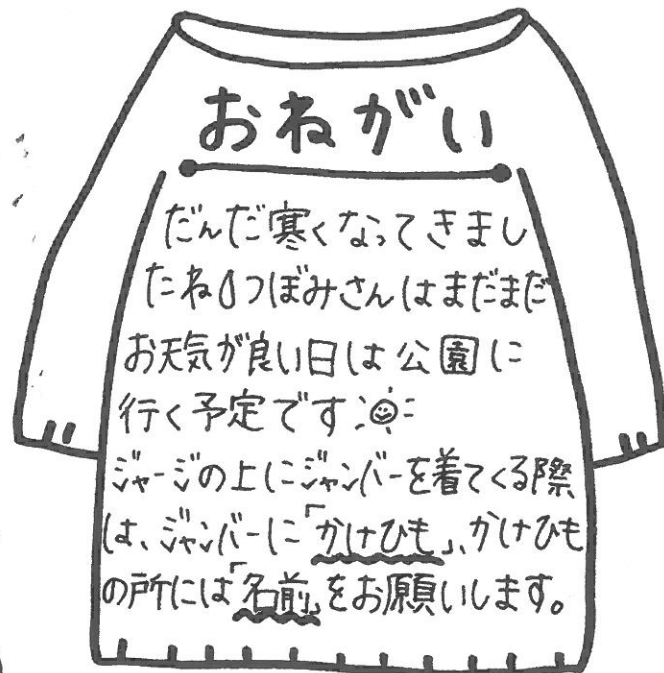 おねがい
だんだ寒くなってきまし
たねつぼみさんはまだまだ
お天気が良い日は公園に
行く予定です
ジャージの上にジャンバーを着てくる際
は、ジャンバーに「かけひも」、かけひも
の所には「名前」をお願いします。